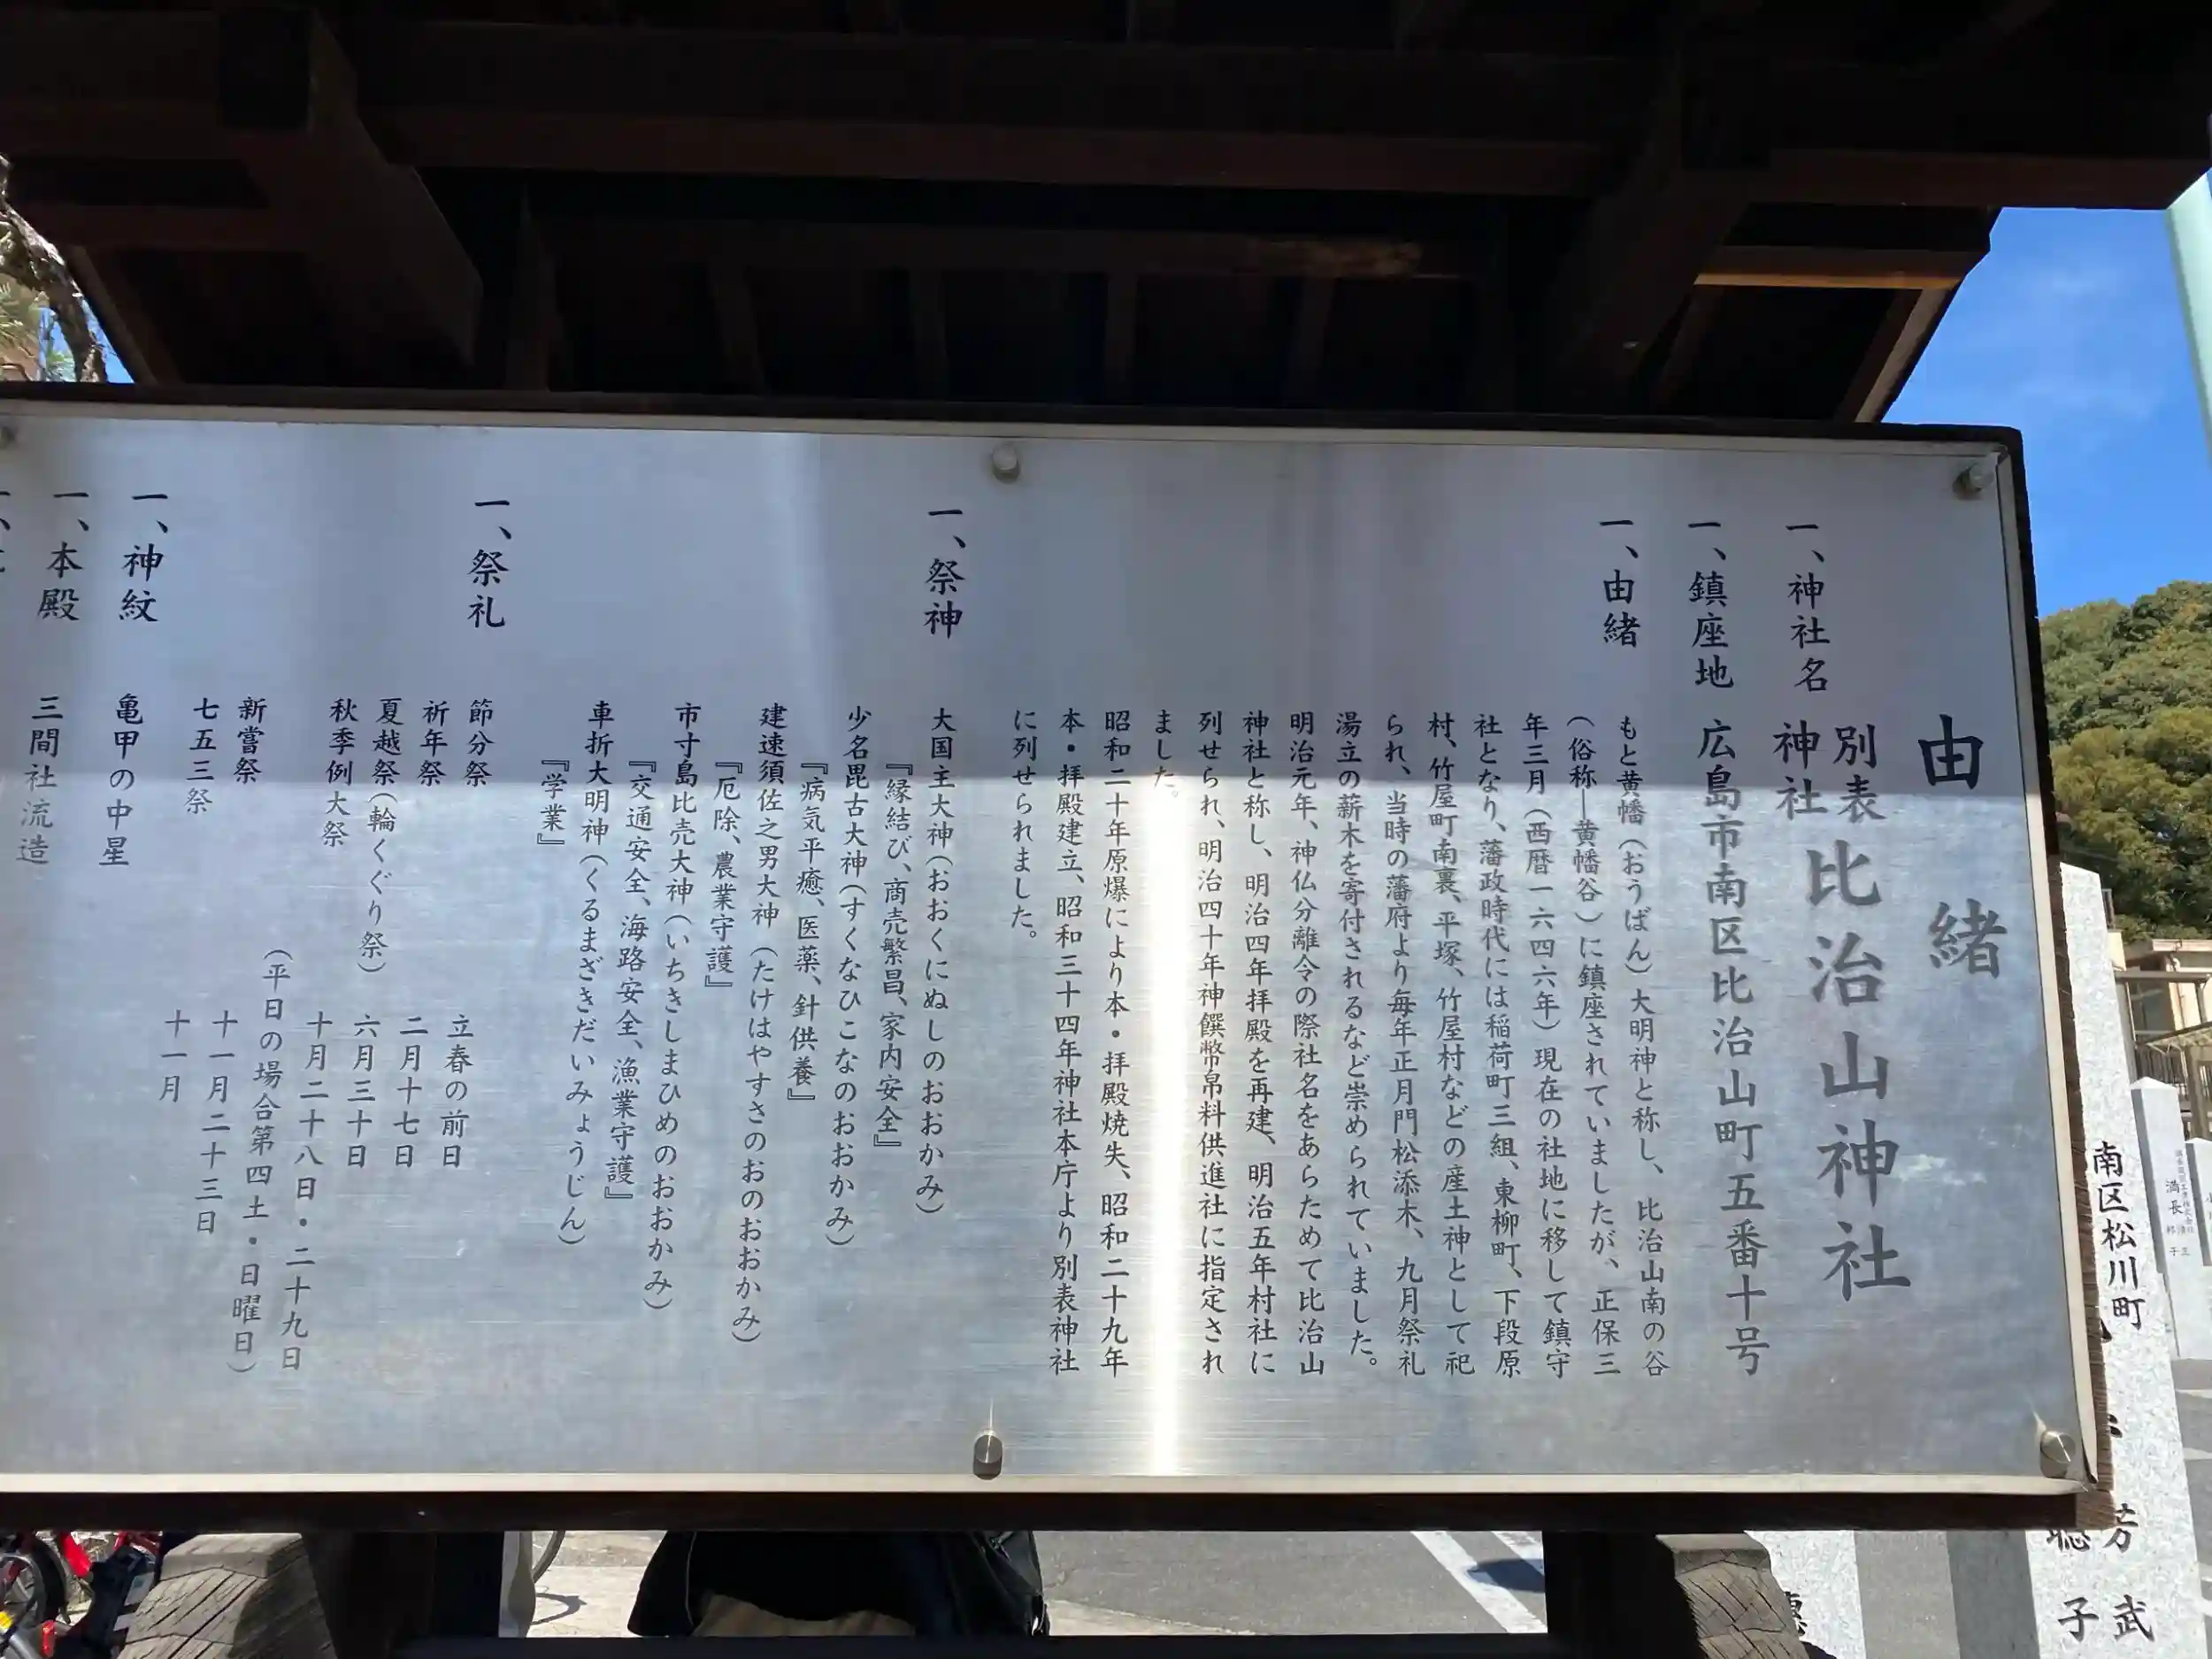 由緒
一、神社名 別表神社 比治山神社
一、鎮座地 広島市南区比治山町五番十号
一、由緒
もと黄幡(おうばん)大明神と称し、比治山南の谷
(俗称―黄幡谷)に鎮座されていましたが、正保三
年三月(西暦一六四六年)現在の社地に移して鎮守
社となり、藩政時代には稲荷町三組、東柳町、下段原
村、竹屋町南裏、平塚、竹屋村などの産土神として祀
られ、当時の藩府より毎年正月門松添木、九月祭礼
湯立の薪木を寄付されるなど崇められていました。
明治元年、神仏分離令の際社名をあらためて比治山
神社と称し、明治四年拝殿を再建、明治五年村社に
列せられ、明治四十年神饌幣帛料供進社に指定され
ました。
昭和二十年原爆により本・拝殿焼失、昭和二十九年
本・拝殿建立、昭和三十四年神社本庁より別表神社
に列せられました。
一、祭神
大国主大神(おおくにぬしのおおかみ)
『縁結び、商売繁昌、家内安全』
少名毘古大神(すくなひこなのおおかみ)
『病気平癒、医薬、針供養』
建速須佐之男大神(たけはやすさのおのおおかみ)
『厄除、農業守護』
市寸島比売大神(いちきしまひめのおおかみ)
『交通安全、海路安全、漁業守護』
車折大明神(くるまざきだいみょうじん)
『学業』
一、祭礼
節分祭 立春の前日
祈年祭 二月十七日
夏越祭(輪くぐり祭) 六月三十日
秋季例大祭 十月二十八日・二十九日
(平日の場合第四土・日曜日)
新嘗祭 十一月二十三日
七五三祭 十一月
一、神紋 亀甲の中星
一、本殿 三間社流造
一、
南区松川町
満長
芳武
聡子